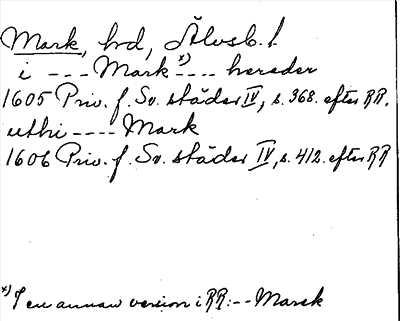 Mark, hd, Älvsb. l.
i --- Mark x) --- hereder
1605 Priv. f. Sv. städer IV, s. 368. efter RR.
uthi ---- Mark
1606 Priv. f. Sv. städer IV, s. 412. efter RR
x) I en annan version i RR: -- Marck